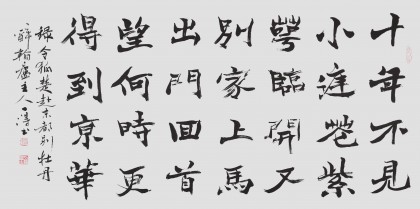 十年不見
小庭花紫
萼臨開又
別家上馬
出門回首
望何時更
得到京華
錄令狐楚赴東都別牡丹
翰廬主人